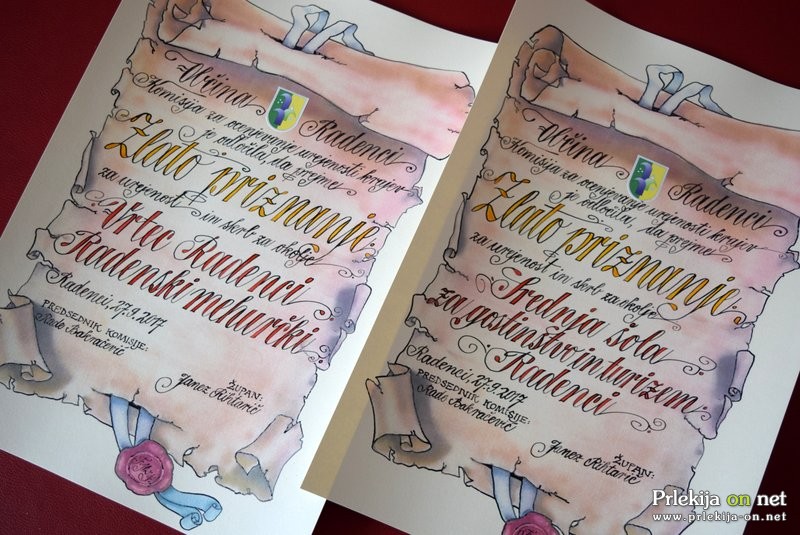 Občina Radenci
Komisija za ocenjevanje urejenosti krajev
je odločila, da prejme
Zlato priznanje
za urejenost in skrb za okolje
Vrtec Radenci
Radenski mehurčki
Radenci, 27.9.2017
PREDSEDNIK KOMISIJE:
Rade Bakračević
ŽUPAN:
Janez Rihtarič
Občina Radenci
Komisija za ocenjevanje urejenosti krajev
je odločila, da prejme
Zlato priznanje
za urejenost in skrb za okolje
Srednja šola
za gostinstvo in turizem
Radenci
Radenci, 27.9.2017
PREDSEDNIK KOMISIJE:
Rade Bakračević
ŽUPAN:
Janez Rihtarič
Prlekija on net
www.prlekija-on.net